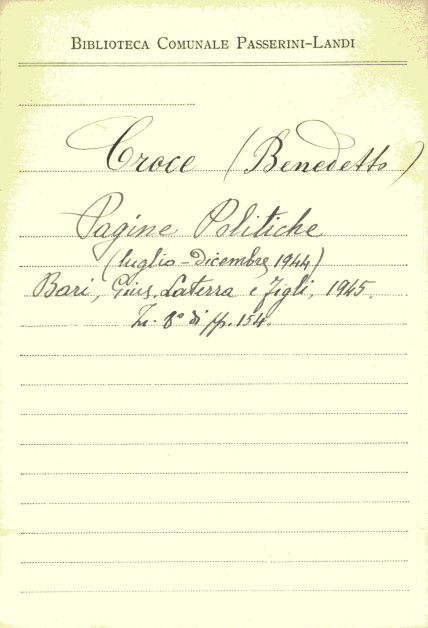 BIBLIOTECA COMUNALE PASSERINI-LANDI
Croce (Benedetto)
Pagine Politiche
(luglio - dicembre 1944)
Bari, Gius. Laterza e figli, 1945.
In. 8° di pp. 154.